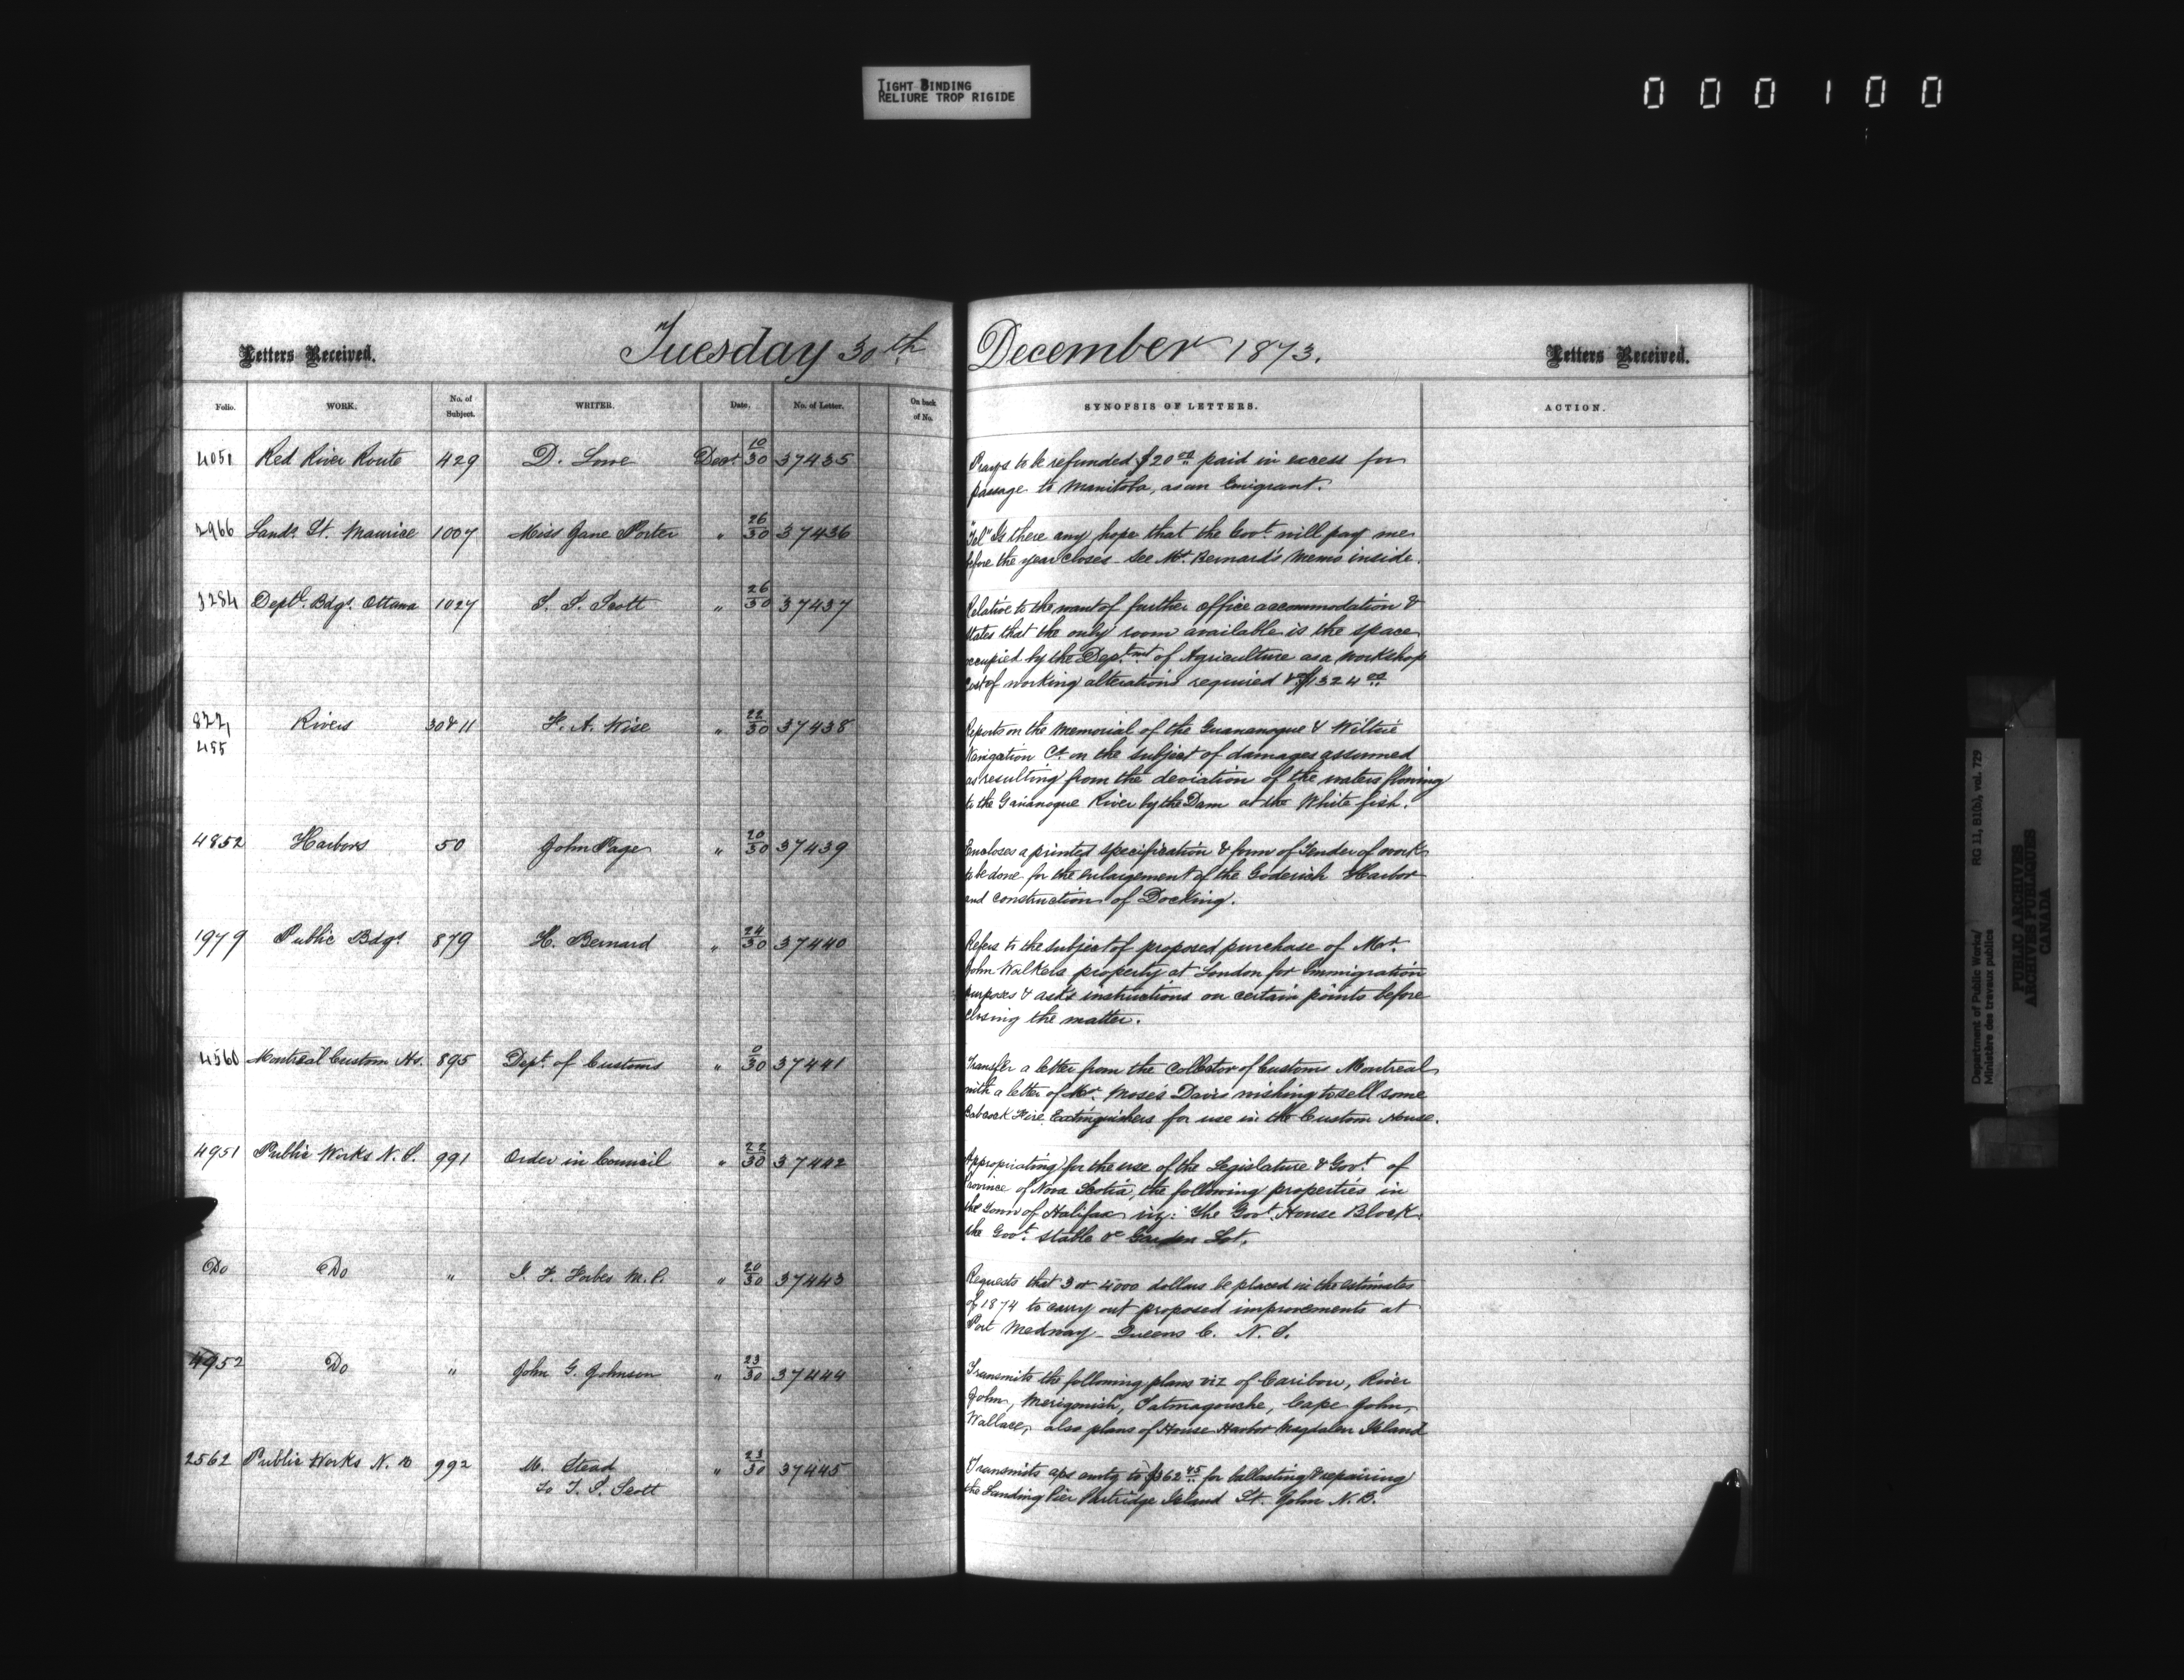 TIGHT BINDING
RELIURE TROP RIGIDE
000100
Letters Received.
Tuesday 30th December 1873.
Letters Received.
Folio. WORK. No. of Subject. WRITER. Date. No. of Letter. On back of No. SYNOPSIS OF LETTERS. ACTION.
4051 Red River Route 429 D. Lowe Decr 10/30 37435 Prays to be refunded $20 00 paid in excess for
passage to Manitoba, as an Emigrant.
2966 Lands St. Maurice 1007 Miss Jane Porter " 26/30 37436 "Tel" Is there any hope that the Govt will pay me
before the year closes - see Mr. Bernard's Memo inside.
3284 Deptl. Bdgs. Ottawa 1027 T. S. Scott " 26/30 37437 Relative to the want of further office accommodation &
states that the only room available is the space
occupied by the Deptmt of Agriculture as a workshop
Cost of working alterations required $1324 00
877, 455 Rivers 30 & 11 F. A. Wise " 22/30 37438 Reports on the Memorial of the Guananoque & Wiltsie
Navigation Co. on the subject of damages assumed
as resulting from the deviation of the waters flowing
to the Gananoque River by the Dam at the White fish.
4852 Harbors 50 John Page " 20/30 37439 Encloses a printed specification & form of Tender of work
to be done for the enlargement of the Goderich Harbor
and construction of Docking.
1979 Public Bdgs 879 H. Bernard " 24/30 37440 Refers to the subject of proposed purchase of Mr.
John Walkers property at London for Immigration
purposes & asks instructions on certain points before
closing the matter.
4560 Montreal Custom Hs. 895 Dept. of Customs " 0/30 37441 Transfer a letter from the Collector of Customs Montreal
with a letter of Mr. Moses Davis wishing to sell some
Babcock Fire Extinguishers for use in the Custom House.
4951 Public Works N. S. 991 Order in Council " 22/30 37442 Appropriating for the use of the Legislature & Govt. of
Province of Nova Scotia, the following properties in
the Town of Halifax viz: The Govt. House Block
the Govt. stable & Garden Lot.
Do Do " J. F. Forbes M. P. " 20/30 37443 Requests that 3 or 4000 dollars be placed in the estimates
of 1874 to carry out proposed improvements at
Port Medway - Queens C. N. S.
4952 Do " John G. Johnson " 23/30 37444 Transmits the following plans viz of Caribou, River
John, Merigonish, Tatmagouche, Cape John,
Wallace, also plans of House Harbor Magdalen Island
2562 Public Works N. B 992 M. Stead " 23/30 37445 Transmits aps amtg to $362 45 for ballasting & repairing
to T. S. Scott the Landing Pier Partridge Island St. John N. B.
Department of Public Works/ RG 11, B1(b), vol. 729
Ministère des travaux publics
PUBLIC ARCHIVES
ARCHIVES PUBLIQUES
CANADA